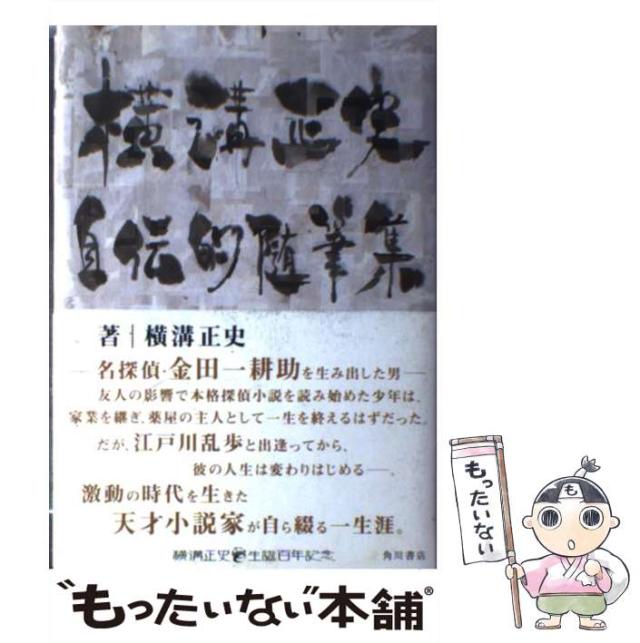 横溝正史
自伝的随筆集
著｜横溝正史
―名探偵・金田一耕助を生み出した男―
友人の影響で本格探偵小説を読み始めた少年は、
家業を継ぎ、薬屋の主人として一生を終えるはずだった。
だが、江戸川乱歩と出逢ってから、
彼の人生は変わりはじめる―。
激動の時代を生きた
天才小説家が自ら綴る一生涯。
横溝正史生誕百年記念
角川書店
"もったいない"本舗®
もったいない